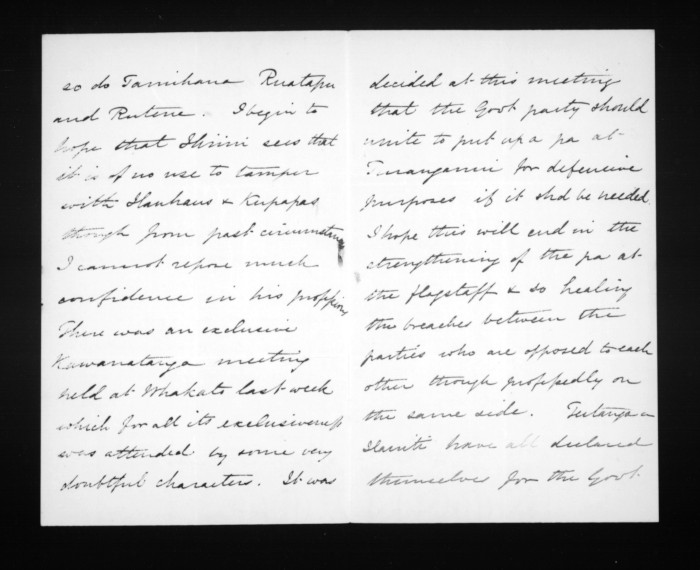 so do Tamihana Ruatapu
and Rutene. I begin to
hope that Hirini sees that
it is of no use to tamper
with Hauhaus & Kupapas
though from past circumstances
I cannot repose much
confidence in his professions
There was an exclusive
Kawanatanga meeting
held at Whakato last week
which for all its exclusiveness
was attended by some very
doubtful characters. It was
decided at this meeting
that the Govt party should
unite to put up a pa at
Turanganui for defensive
purposes if it shd be needed.
I hope this will end in the
strengthening of the pa at
the flagstaff & so healing
the breaches between the
parties who are opposed to each
other though professedly on
the same side.
have all declared
themselves for the Govt